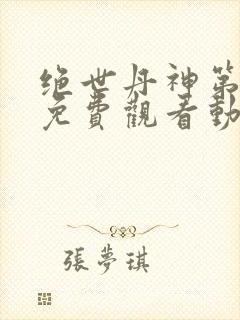 绝世丹神第
免費觀看動
張夢琪